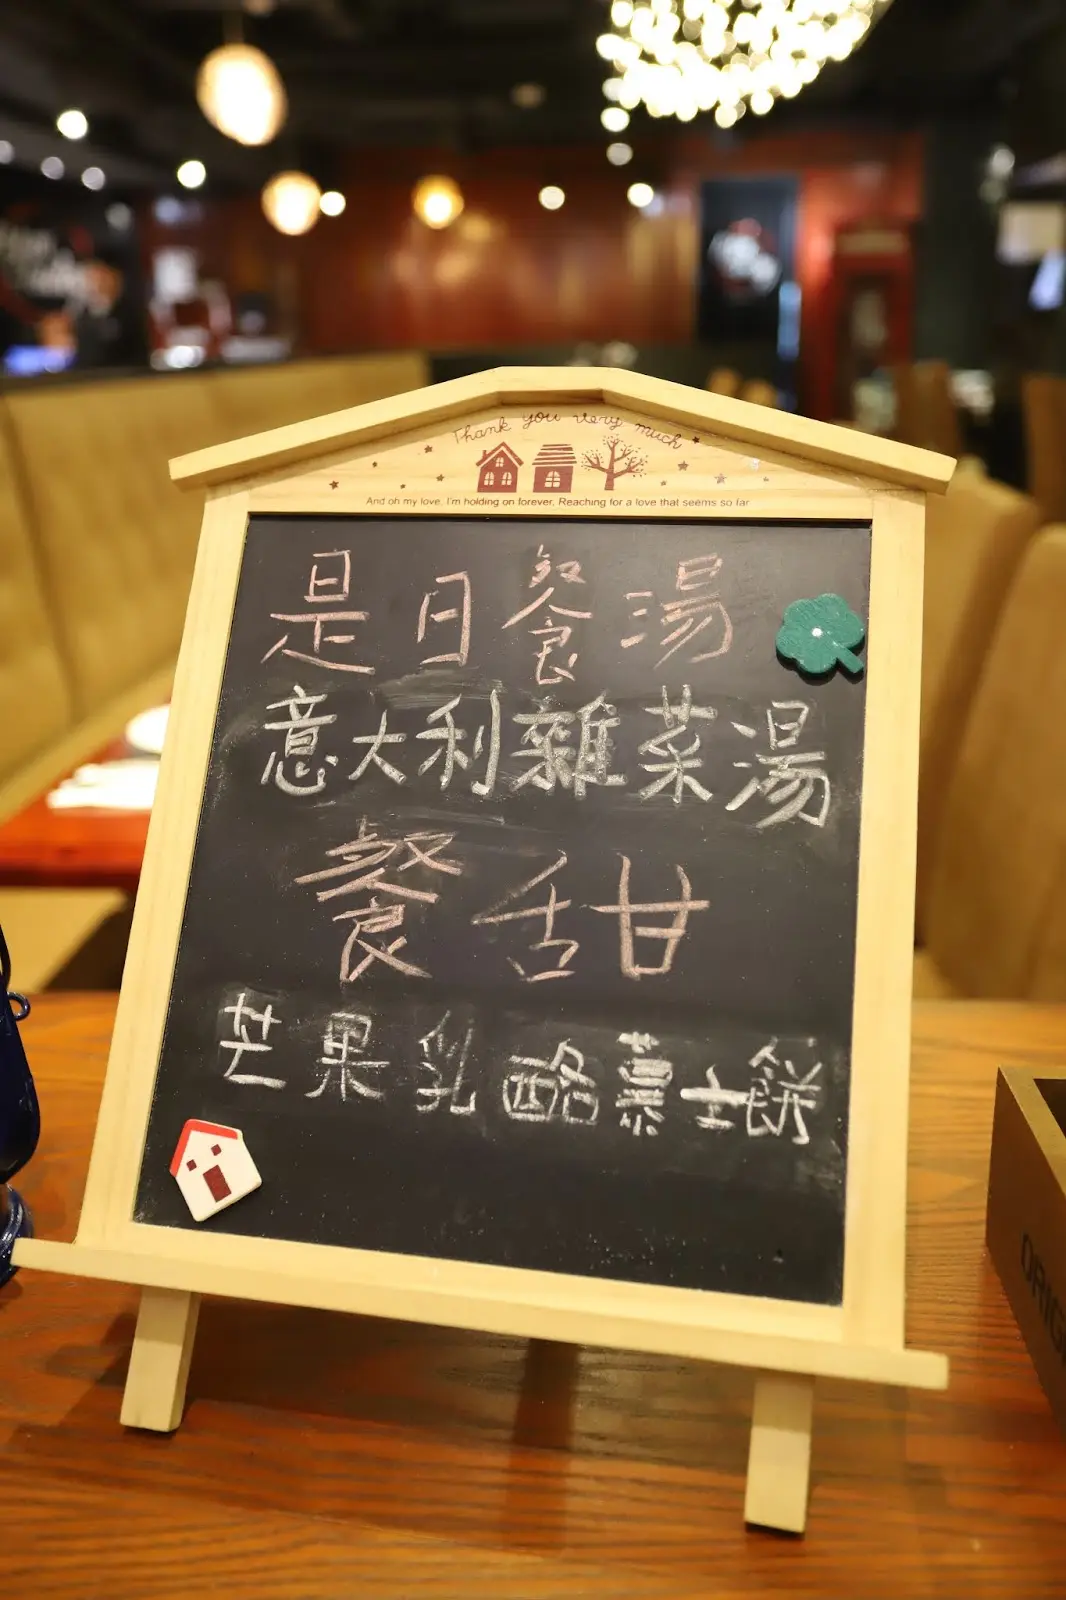 Thank you very much
And oh my love. I'm holding on forever. Reaching for a love that seems so far
是日餐湯
意大利雜菜湯
餐舌甘
芒果乳酪士餅
ORIG